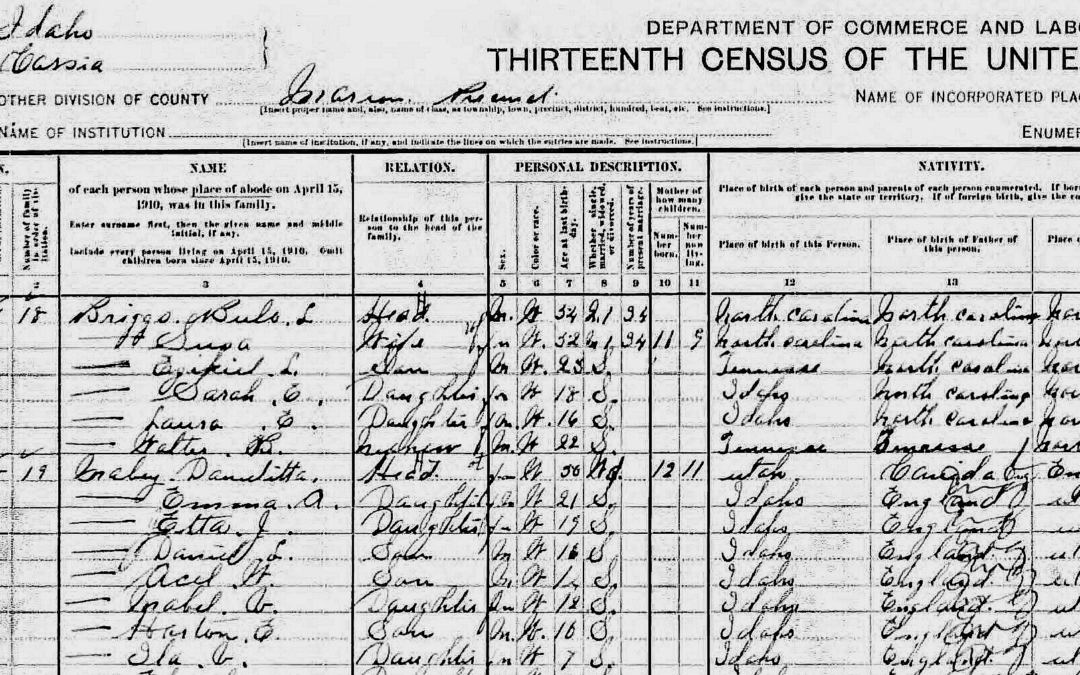 Idaho
Cassia
DEPARTMENT OF COMMERCE AND LABO
THIRTEENTH CENSUS OF THE UNITE
OTHER DIVISION OF COUNTY Marion
NAME OF INCORPORATED PLAC
[Insert proper name and, also, name of class, as township, town, precinct, district, hundred, beat, etc. See instructions.]
NAME OF INSTITUTION
ENUMER
[Insert name of institution, if any, and indicate the lines on which the entries are made. See instructions.]
N. NAME RELATION. PERSONAL DESCRIPTION. NATIVITY.
of each person whose place of abode on April 15, 1910, was in this family.
Enter surname first, then the given name and middle initial, if any.
Include every person living on April 15, 1910. Omit children born since April 15, 1910.
Number of family in order of visitation.
Relationship of this person to the head of the family.
Sex.
Color or race.
Age at last birthday.
Whether single, married, widowed, or divorced.
Number of years of present marriage.
Mother of how many children.
Number born.
Number now living.
Place of birth of each person and parents of each person enumerated. If bor
give the state or territory. If of foreign birth, give the co
Place of birth of this Person.
Place of birth of Father of this person.
Place o
3 4 5 6 7 8 9 10 11 12 13
18 Briggs L Head M. W 54 M1 34 North Carolina North Carolina
Susa Wife W 52 M1 34 11 9 North Carolina North Carolina
L. Son M W. 25 S. Tennesse North Carolina
Sarah E. Daughter W 18 S. Idaho North Carolina
Laura E. Daughter W. 16 S. Idaho North Carolina
Walter B. Nephew M. W 22 S. Tennesse
19 Mabey Head W 50 Wd. 12 11 Utah Canada Eng
Emma A. Daughter W 21 S. Idaho England
Etta J. Daughter W 19 S. Idaho England
Daniel L. Son M W 16 S Idaho England
Acel W. Son W 14 S. Idaho England
Mabel V. Daughter W 12 S. Idaho England
Haston E. Son M. W. 10 S. Idaho England
Ila V. Daughter W 7 S. Idaho England